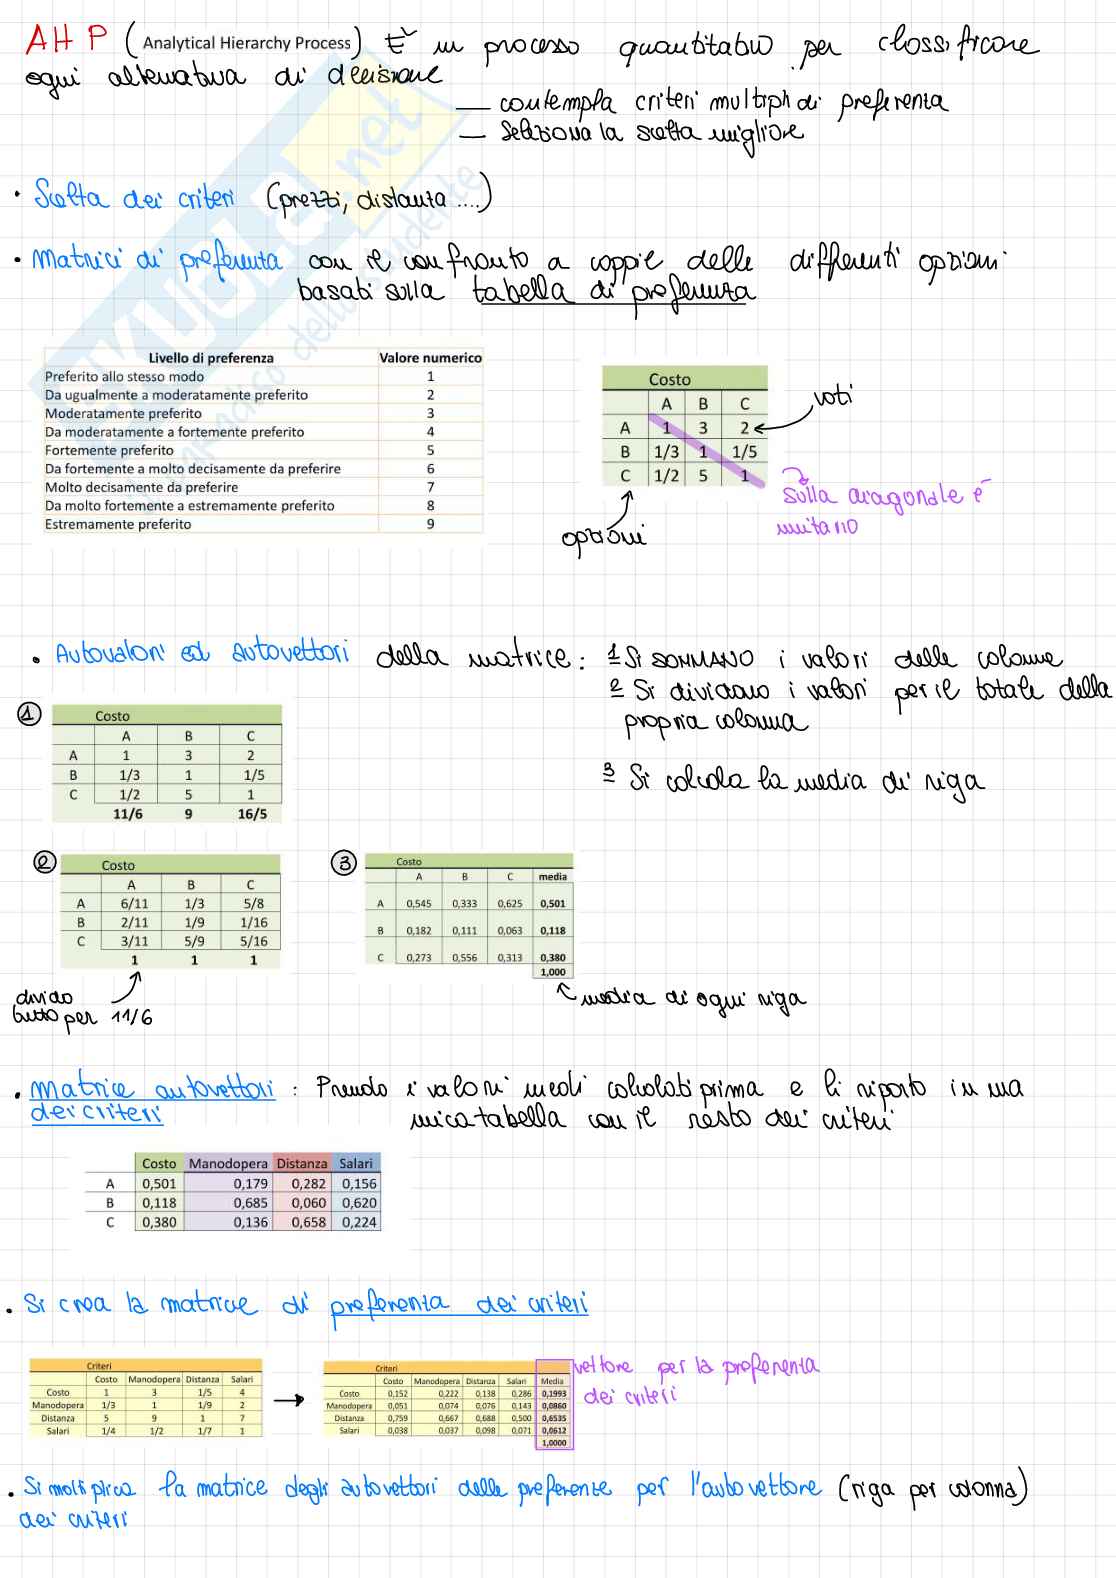 AHP (Analytical Hierarchy Process) È un processo quantitativo per classificare
ogni alternativa di decisione
— contempla criteri multipli di preferenza
— Seleziona la scelta migliore
• Scelta dei criteri (prezzi, distanza ....)
• Matrici di preferenza con il confronto a coppie delle differenti opzioni
basati sulla tabella di preferenza
Livello di preferenza Valore numerico
Preferito allo stesso modo 1
Da ugualmente a moderatamente preferito 2
Moderatamente preferito 3
Da moderatamente a fortemente preferito 4
Fortemente preferito 5
Da fortemente a molto decisamente da preferire 6
Molto decisamente da preferire 7
Da molto fortemente a estremamente preferito 8
Estremamente preferito 9
Costo
A B C
A 1 3 2
B 1/3 1 1/5
C 1/2 5 1
voti
opzioni
sulla diagonale è
unitario
• Autovalori ed autovettori della matrice: 1 Si SOMMANO i valori delle colonne
2 Si dividono i valori per il totale della
propria colonna
3 Si calcola la media di riga
1
Costo
A B C
A 1 3 2
B 1/3 1 1/5
C 1/2 5 1
11/6 9 16/5
2
Costo
A B C
A 6/11 1/3 5/8
B 2/11 1/9 1/16
C 3/11 5/9 5/16
1 1 1
divido
tutto per 11/6
3
Costo
A B C media
A 0,545 0,333 0,625 0,501
B 0,182 0,111 0,063 0,118
C 0,273 0,556 0,313 0,380
1,000
media di ogni riga
• Matrice autovettori : Prendo i valori medi calcolati prima e li riporto in una
dei criteri unica tabella con il resto dei criteri
Costo Manodopera Distanza Salari
A 0,501 0,179 0,282 0,156
B 0,118 0,685 0,060 0,620
C 0,380 0,136 0,658 0,224
• Si crea la matrice di preferenza dei criteri
Criteri
Costo Manodopera Distanza Salari
Costo 1 3 1/5 4
Manodopera 1/3 1 1/9 2
Distanza 5 9 1 7
Salari 1/4 1/2 1/7 1
Criteri
Costo Manodopera Distanza Salari Media
Costo 0,152 0,222 0,138 0,286 0,1993
Manodopera 0,051 0,074 0,076 0,143 0,0860
Distanza 0,759 0,667 0,688 0,500 0,6535
Salari 0,038 0,037 0,098 0,071 0,0612
1,0000
vettore per la preferenza
dei criteri
• Si moltiplica la matrice degli autovettori delle preferenze per l'autovettore (riga per colonna)
dei criteri